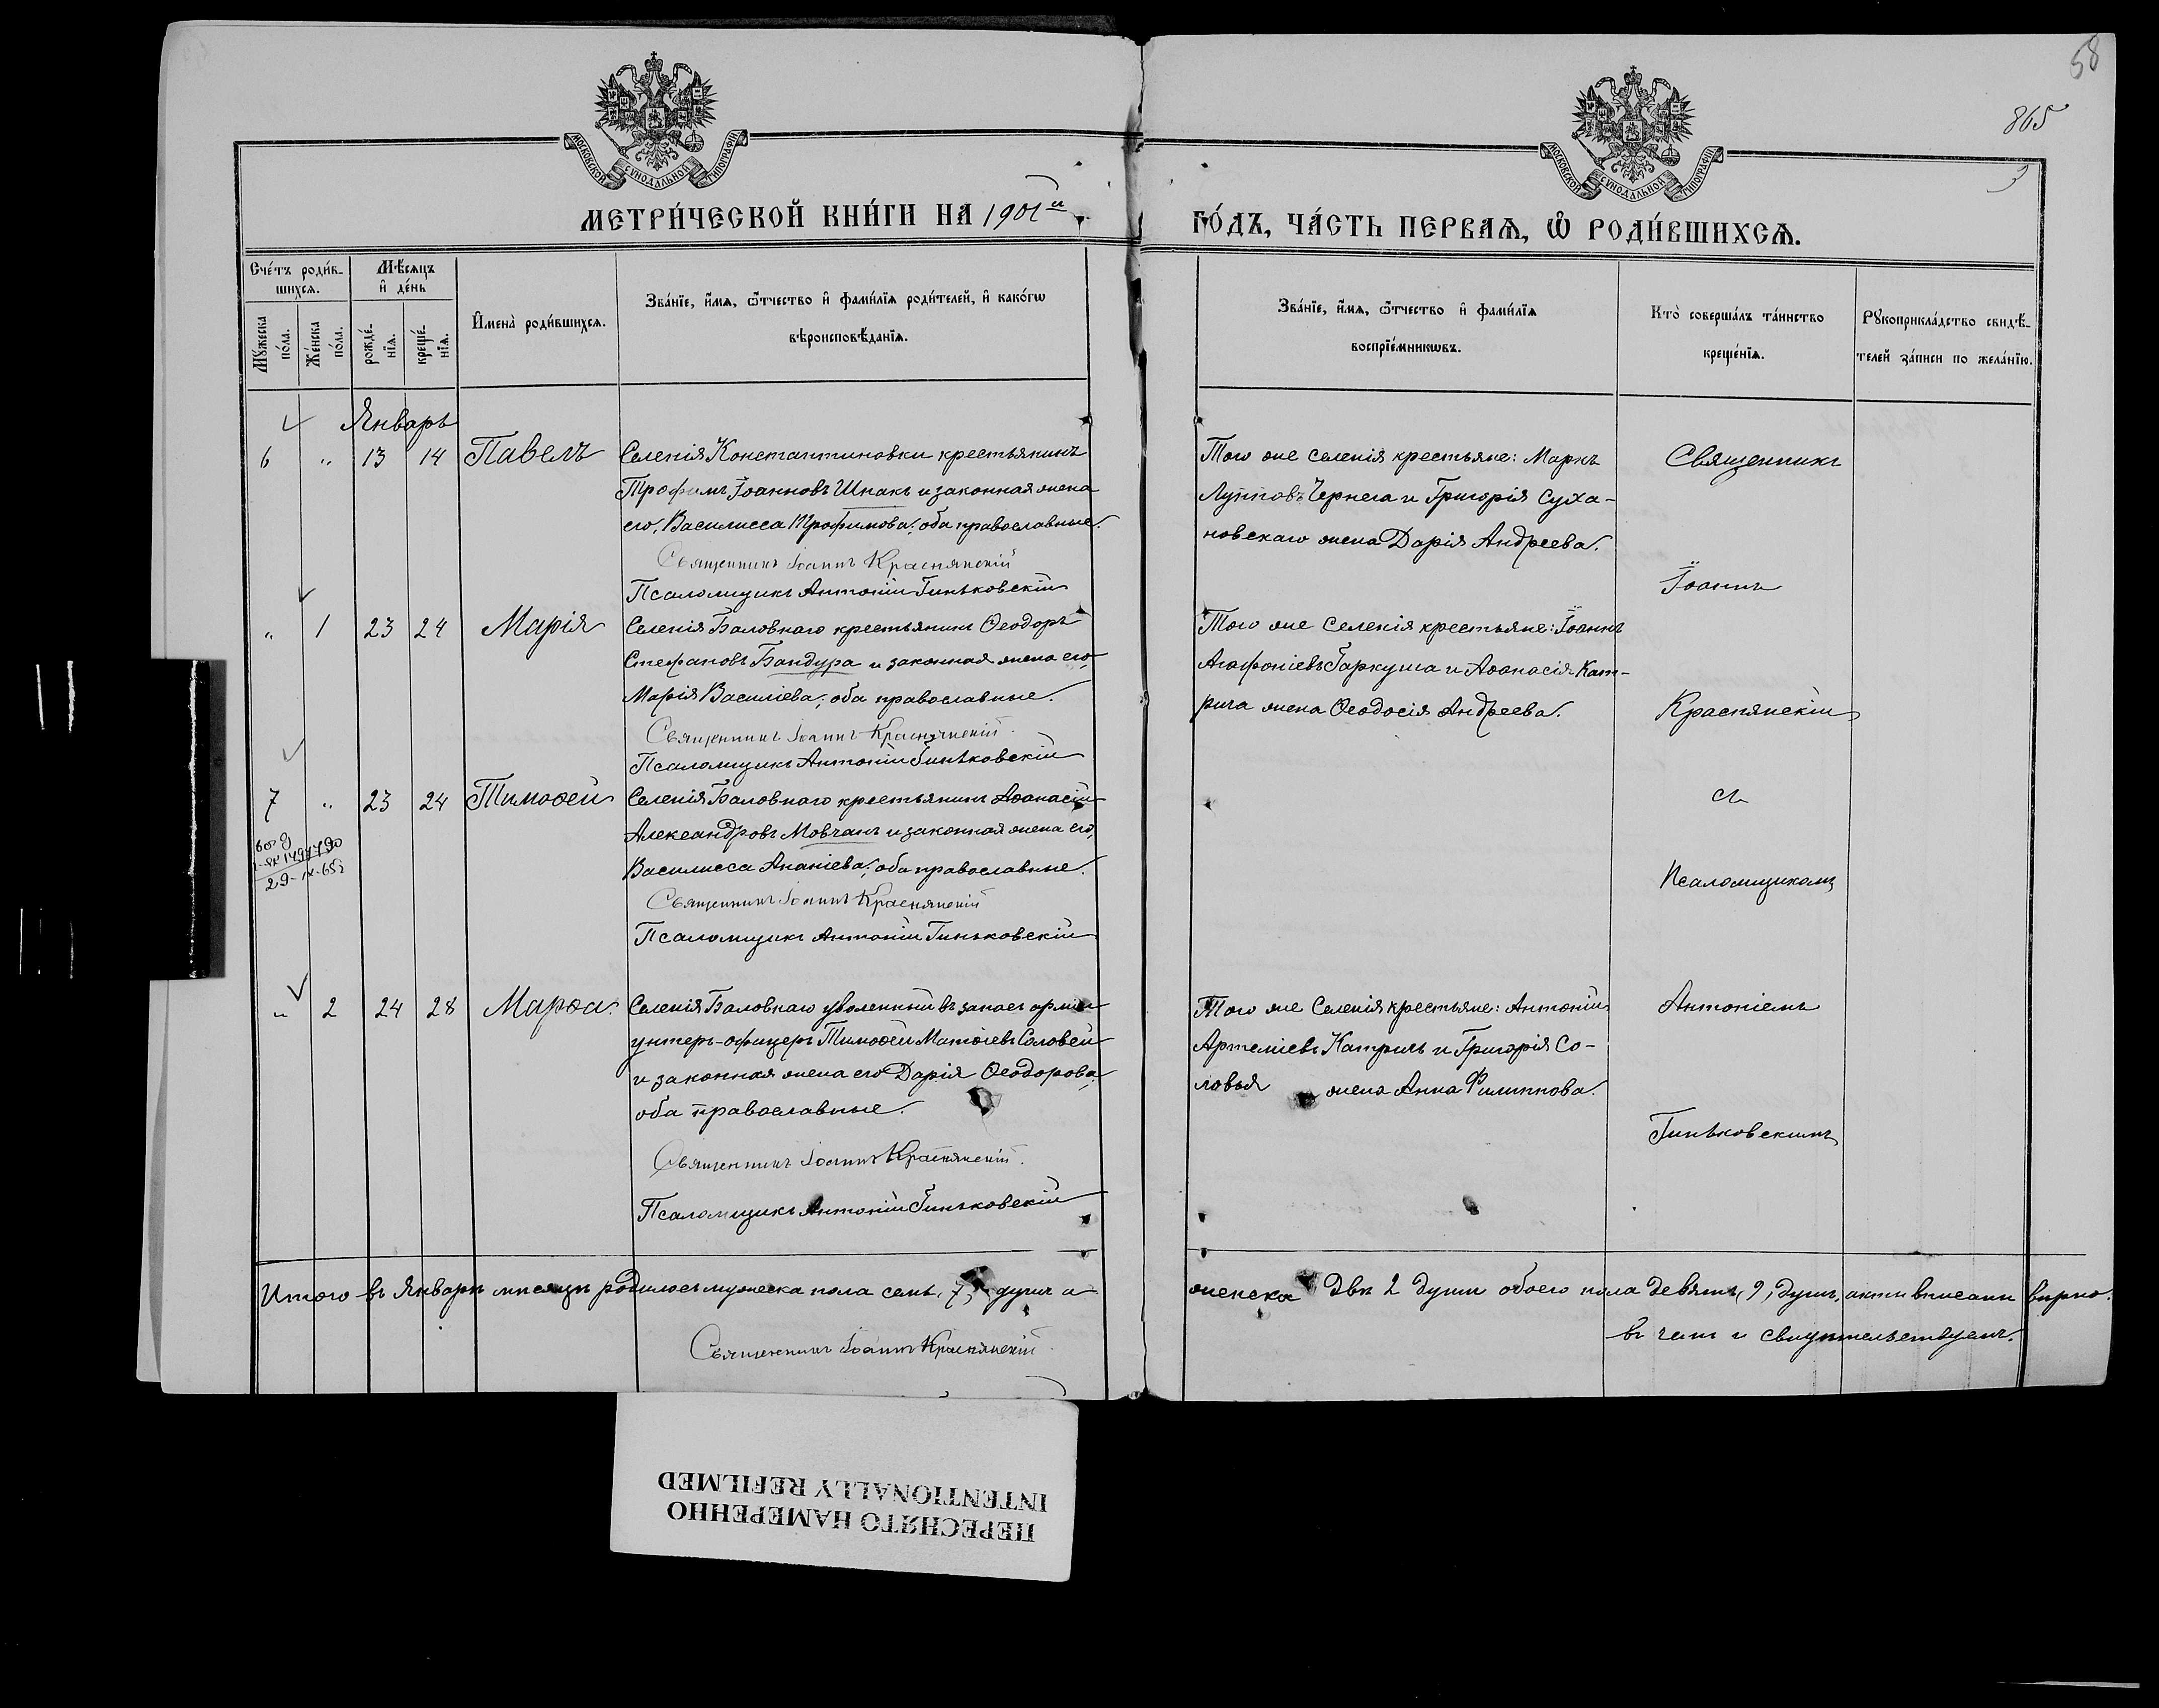 58
865
3
МОСКОВСКОЙ СѴНОДАЛЬНОЙ ТИПОГРАФІИ
МОСКОВСКОЙ СѴНОДАЛЬНОЙ ТИПОГРАФІИ
МЕТРИ́ЧЕСКОЙ КНИ́ГИ НА 1901й
ГО́ДЪ, ЧА́СТЬ ПЕРВАѦ, Ѡ҆ РОДИ́ВШИХСѦ.
Сче́тъ роди́в-
шихсѧ.
Мѣ́сѧцъ
и҆ де́нь
Мꙋ́жеска
по́ла.
Же́нска
по́ла.
рожде́-
нїѧ.
креще́-
нїѧ.
И҆мена̀ роди́вшихсѧ.
Зва́нїе, и҆́мѧ, ѻ҆́тчество и҆ фами́лїѧ роди́телей, и҆ како́гѡ
вѣроисповѣ́данїѧ.
Зва́нїе, и҆́мѧ, ѻ҆́тчество и҆ фами́лїѧ
воспрїе́мникѡвъ.
Кто̀ соверша́лъ та́инство
креще́нїѧ.
Рꙋкоприкла́дство свидѣ́-
телей за́писи по жела́нїю.
Январь
6 " 13 14 Павелъ Селенія Константиновки крестьянинъ
Трофимъ Іоанновъ Шпакъ и законная жена
его, Василисса Трофимова; оба православные.
Священникъ Іоаннъ Краснянскій
Псаломщикъ Антоній Гиньковскій
Того же селенія крестьяне: Маркъ
Лупповъ Чернега и Григорія Суха-
новскаго жена Дарія Андреева.
Священникъ
Іоаннъ
" 1 23 24 Марія Селенія Баловнаго крестьянинъ Ѳеодоръ
Стефановъ Бандура и законная жена его,
Марія Василіева; оба православные.
Священникъ Іоаннъ Краснянскій
Псаломщикъ Антоній Гиньковскій
Того же Селенія крестьяне: Іоаннъ
Агафоніевъ Гаркуша и Аѳанасія Кат-
рича жена Ѳеодосія Андреева.
Краснянскій
7 " 23 24 Тимоѳей Селенія Баловнаго крестьянинъ Аѳанасій
Александровъ Мовчанъ и законная жена его,
Василисса Ананіева; оба православные.
Священникъ Іоаннъ Краснянскій
Псаломщикъ Антоній Гиньковскій
29-IX-65
съ
Псаломщикомъ
" 2 24 28 Марѳа. Селенія Баловнаго уволенный въ запасъ арміи
унтеръ-офицеръ Тимоѳей Матѳіевъ Соловей
и законная жена его Дарія Ѳеодорова;
оба православные.
Священникъ Іоаннъ Краснянскій.
Псаломщикъ Антоній Гиньковскій
Того же Селенія крестьяне: Антоній
Артеміевъ Катричъ и Григорія Со-
ловья жена Анна Филиппова.
Антоніемъ
Гиньковскимъ
Итого въ Январѣ мѣсяцѣ родилось мужеска пола семь, 7, душъ а
женска двѣ 2 души обоего пола девять, 9, душъ, акты вписаны вѣрно.
въ чемъ и свидѣтельствуемъ.
Священникъ Іоаннъ Краснянскій
ПЕРЕСНЯТО НАМЕРЕННО
INTENTIONALLY REFILMED